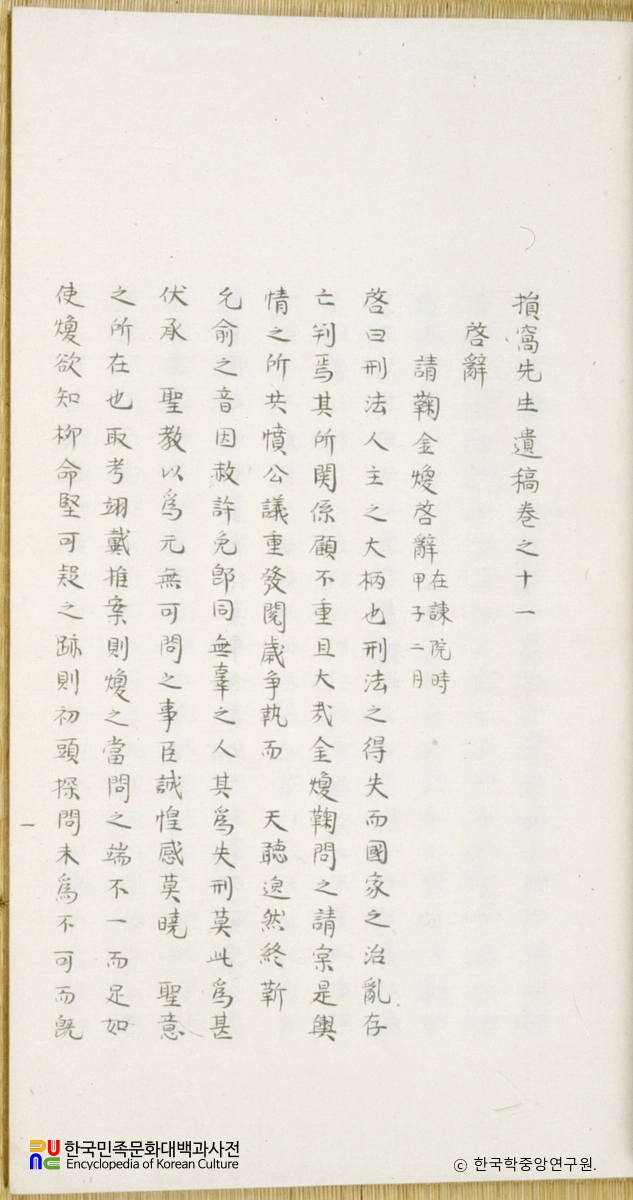 損窩先生遺稿卷之十一
啓辭
請鞫金煥啓辭在諫院時甲子二月
啓曰刑法人主之大柄也刑法之得失而國家之治亂存
亡判焉其所関係顧不重且大㢤金煥鞫問之請寀是輿
情之所共憤公議重發閱歲爭執而 天聽邈然終靳
允俞之音因赦許免卽同無辜之人其爲失刑莫此爲甚
伏承 聖教以爲元無可問之事臣誠惶感莫曉 聖意
之所在也取考翊戴推案則煥之當問之端不一而足如
使煥欲知柳命堅可疑之跡則初頭探問未爲不可而旣
一
한국민족문화대백과사전
Encyclopedia of Korean Culture
ⓒ 한국학중앙연구원.